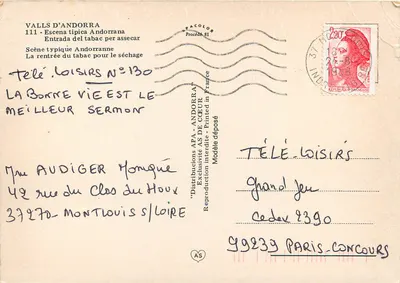 VALLS D'ANDORRA
111 - Escena tipica Andorrana
Entrada del tabac per assecar
Scène typique Andorranne
La rentrée du tabac pour le séchage
TÉLÉ.LOISIRS N° 130
LA BONNE VIE EST LE
MEILLEUR SERMON
Mme AUDIGER Monique
42 rue du Clos du Houx
37270 - MONTLOUIS S/LOIRE
Procédé 81
"Distribucions APA - ANDORRA"
Exclusivité AS DE CŒUR
Reproduction interdite - Printed in France
Modèle déposé
AS
2,20
37
TÉLÉ-LOISIRS
Grand Jeu
Cedex 2390
99239 PARIS-CONCOURS